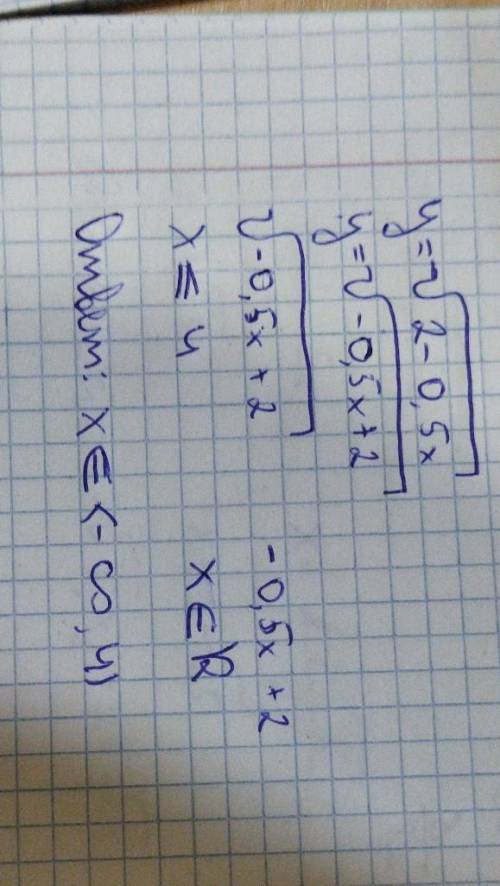 y = √2 - 0,5x
y = √-0,5x + 2
√-0,5x + 2    -0,5x + 2
x ≤ 4    x ∈ R
Ответ: x ∈ <-∞, 4)